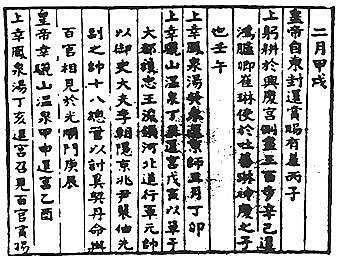 二月甲戌
皇帝自東封還賞賜有差丙子
上躬耕於興慶宮側盡三百步辛己還
鴻臚卿崔琳使於吐蕃琳神慶之子
也壬午
上幸鳳泉湯還京師三月丁卯
上幸驪山温泉還宮戊寅以單于
大都護忠王浚領河北道行軍元帥
以御史大夫李朝隱京兆尹裴伯先
副之帥十八總管以討奚契丹命與
百官相見於光順門庚辰
皇帝幸驪山温泉甲申還宮乙酉
上幸鳳泉湯丁亥還宮召見百官賞賜